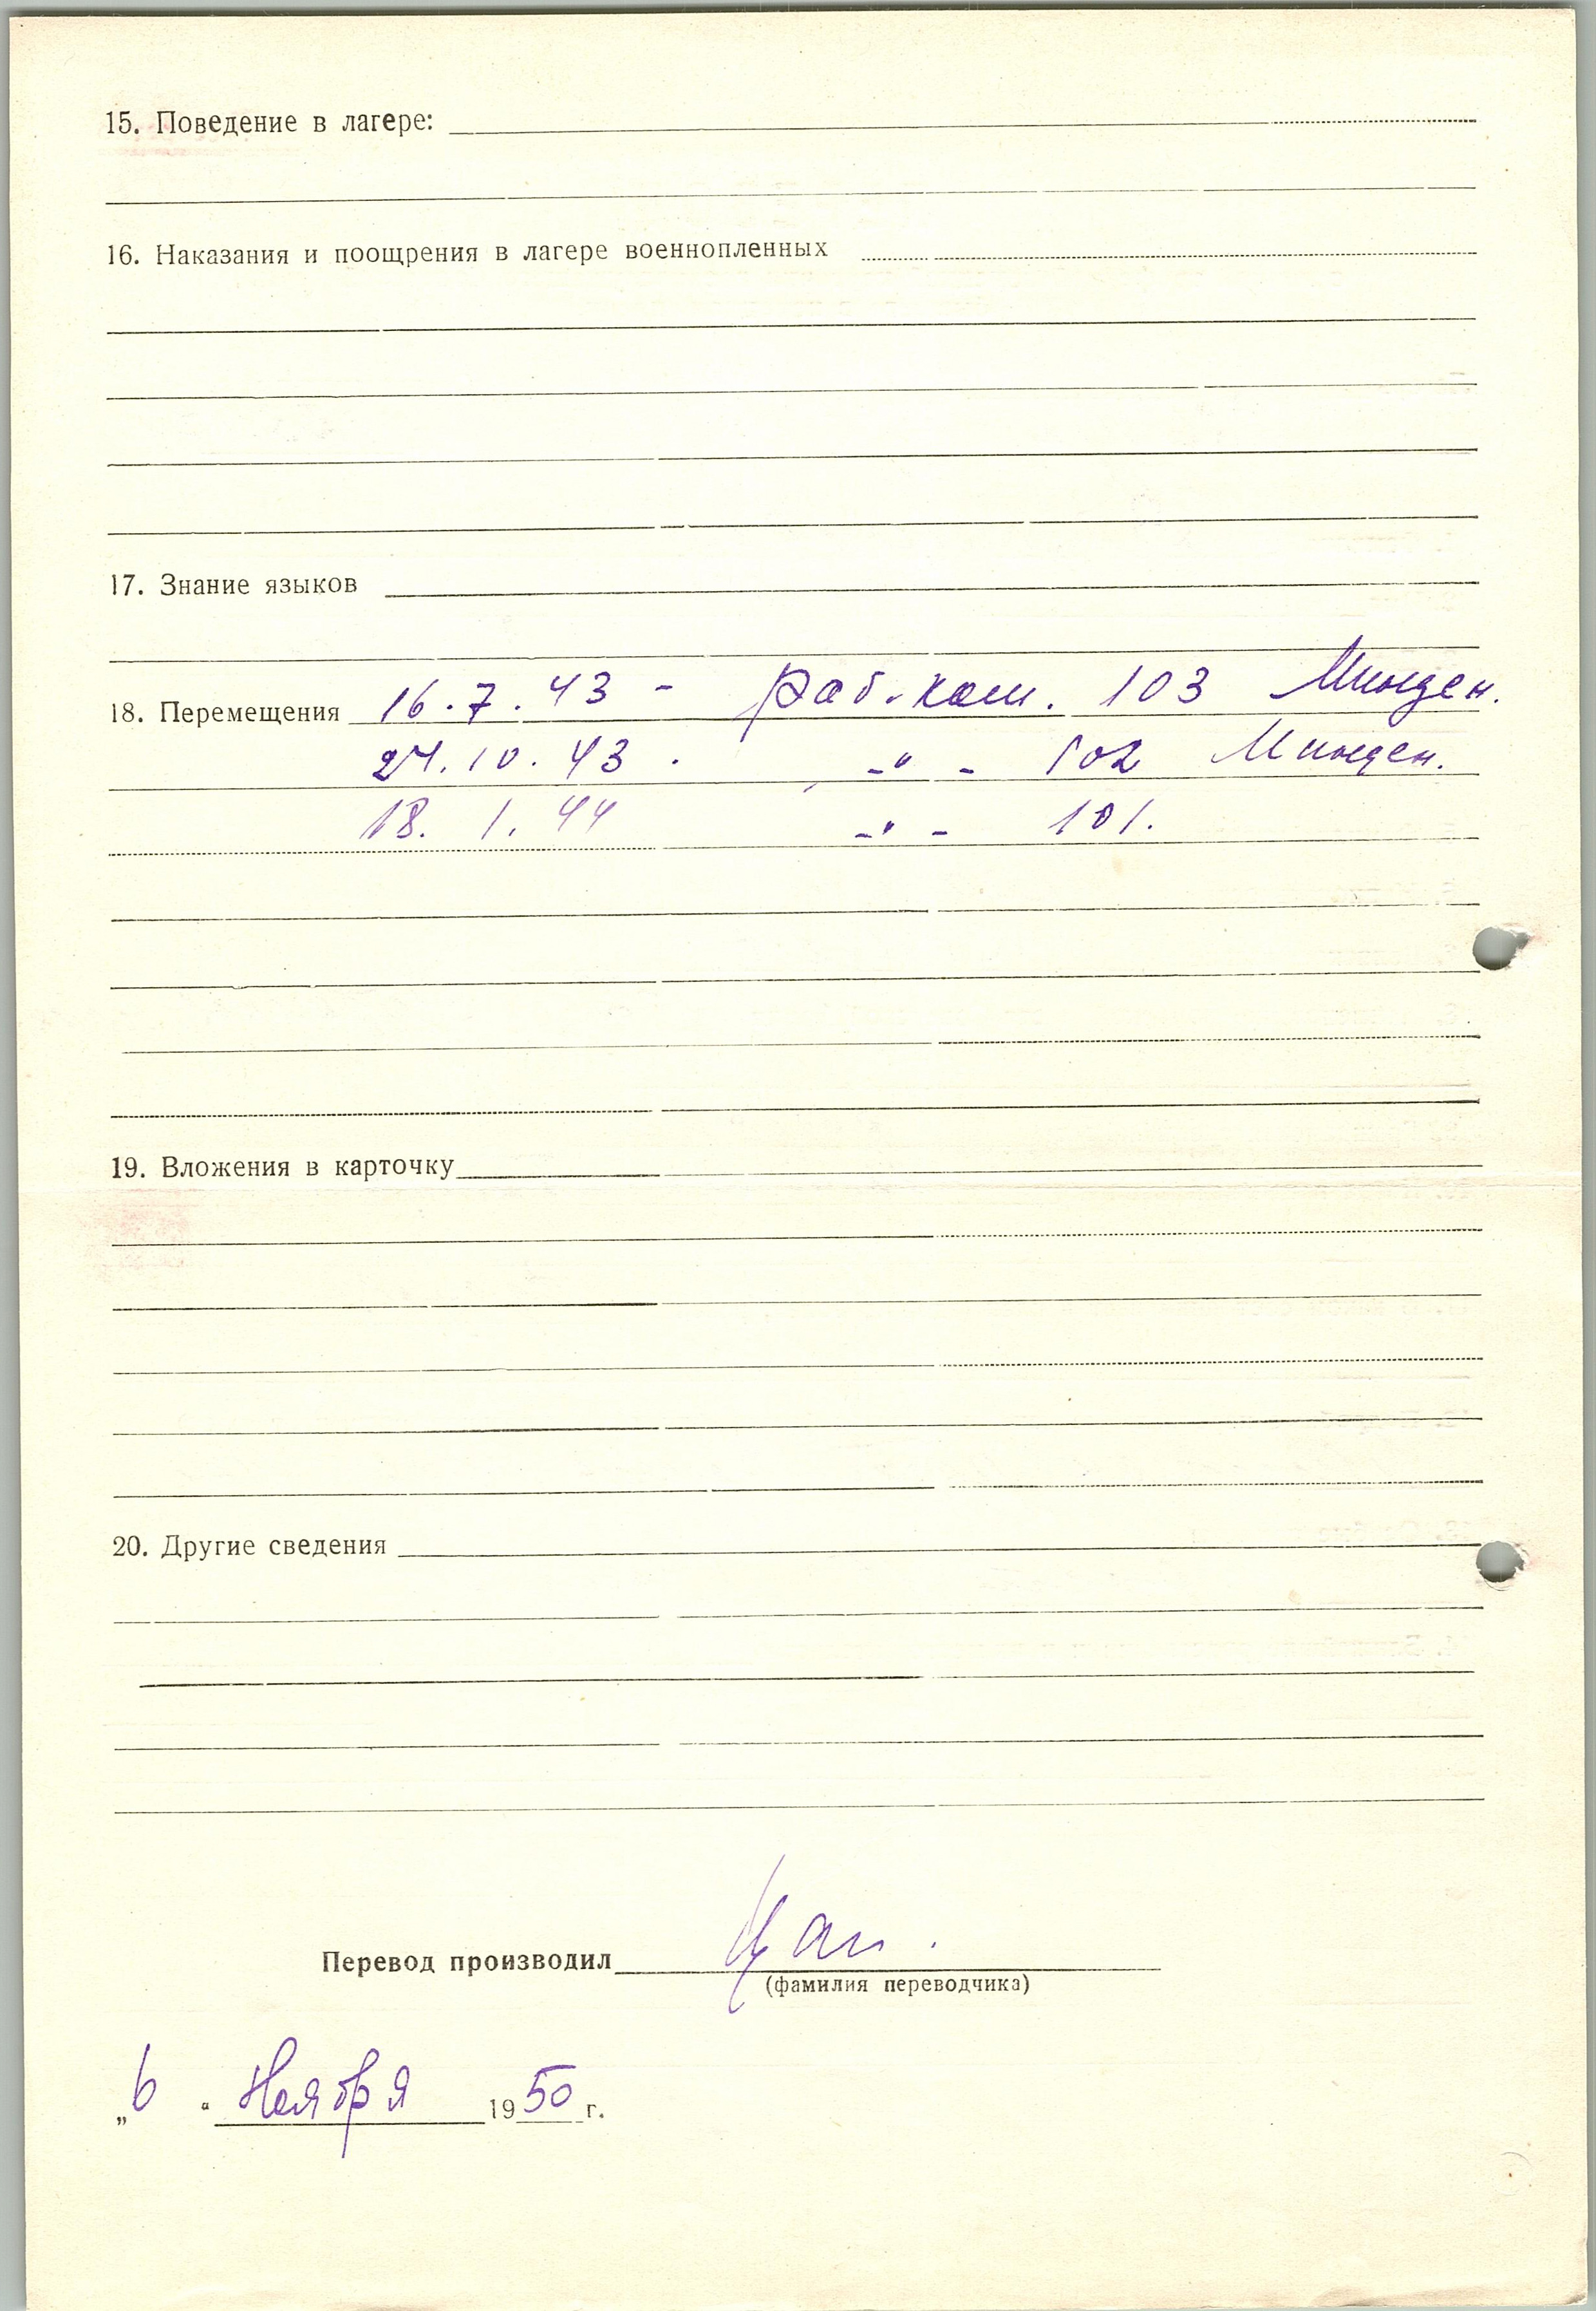 15. Поведение в лагере:
16. Наказания и поощрения в лагере военнопленных
17. Знание языков
18. Перемещения 16.7.43 - Раб. ком. 103 Минден.
27.10.43. -"- 102 Минден.
18. 1. 44 -"- 101.
19. Вложения в карточку
20. Другие сведения
Перевод производил
(фамилия переводчика)
„6“ Ноября 1950 г.